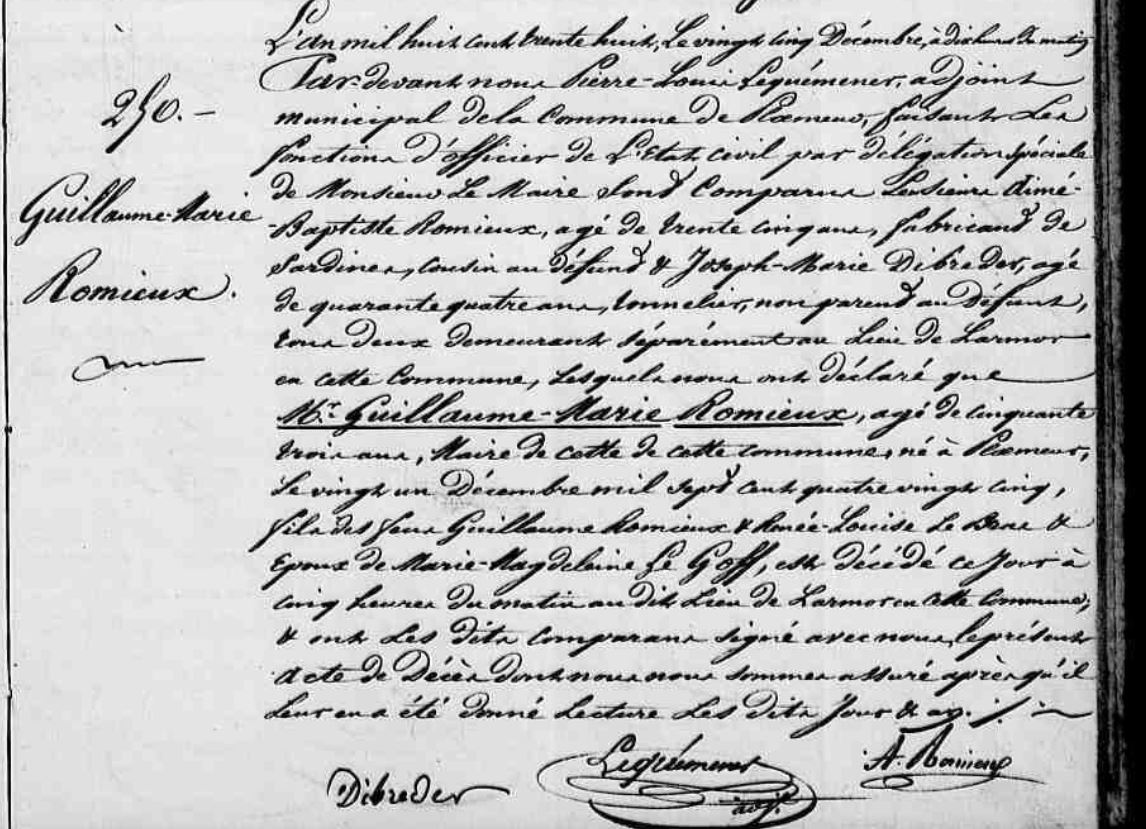 L'an mil huit cent trente huit, le vingt cinq Décembre, à dix heures du matin
Par-devant nous Pierre-Louis Lequémener, adjoint
municipal de la Commune de Ploemeur, faisant les
fonctions d'officier de l'Etat civil par délégation spéciale
de Monsieur le Maire sont Comparus Les sieurs Aimé-
-Baptiste Romieux, agé de trente cinq ans, fabricant de
Sardines, cousin au défunt & Joseph-Marie Dibreder, agé
de quarante quatre ans, tonnelier, non parent au Défunt,
tous deux demeurant séparément au Lieu de Larmor
en cette Commune, Lesquels nous ont déclaré que
Mr. Guillaume-Marie Romieux, agé de cinquante
trois ans, Maire de cette de cette commune, né à Ploemeur,
le vingt un Décembre mil sept cent quatre vingt cinq,
fils des feus Guillaume Romieux & Renée-Louise Le &
Epoux de Marie-Magdeleine Le Goff, est décédé ce jour à
cinq heures du matin au dit Lieu de Larmor en cette Commune,
& ont les dits Comparans signé avec nous le présent
Acte de Décès dont nous nous sommes assuré après qu'il
leur en a été donné Lecture Les dits Jour & an.
250.-
Guillaume-Marie
Romieux.
Dibreder
Lequémener
adjt
A. Romieux